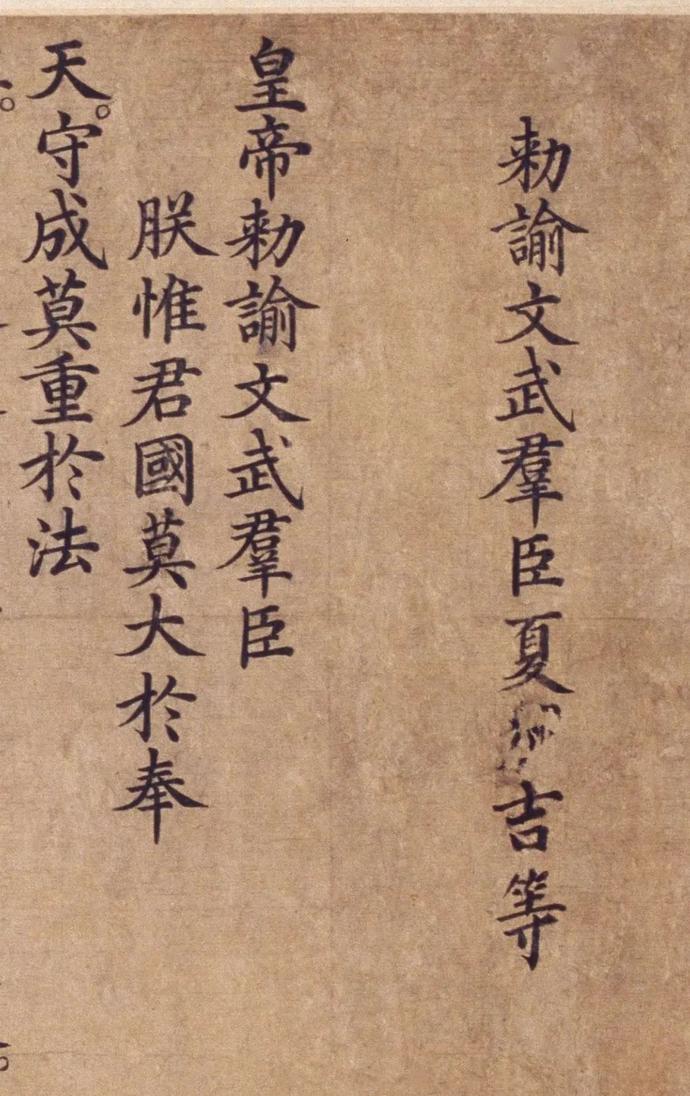 勑諭文武羣臣夏吉等
皇帝勑諭文武羣臣
朕惟君國莫大於奉
天。守成莫重於法